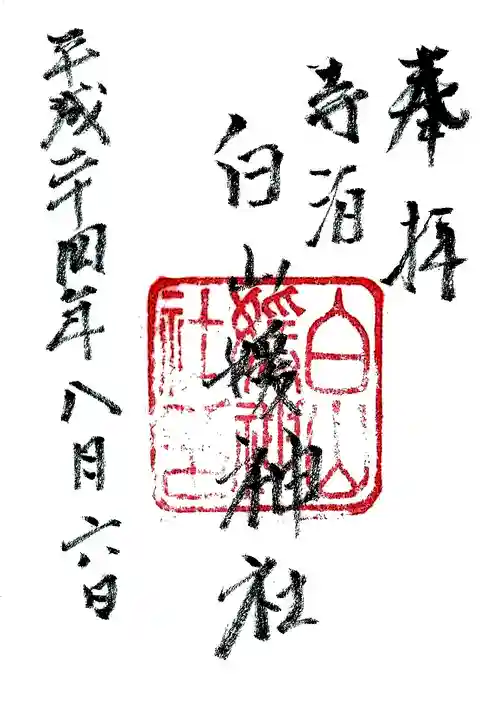 奉拝
寺泊
白山媛神社
平成二十四年八月六日
白山
媛神
社